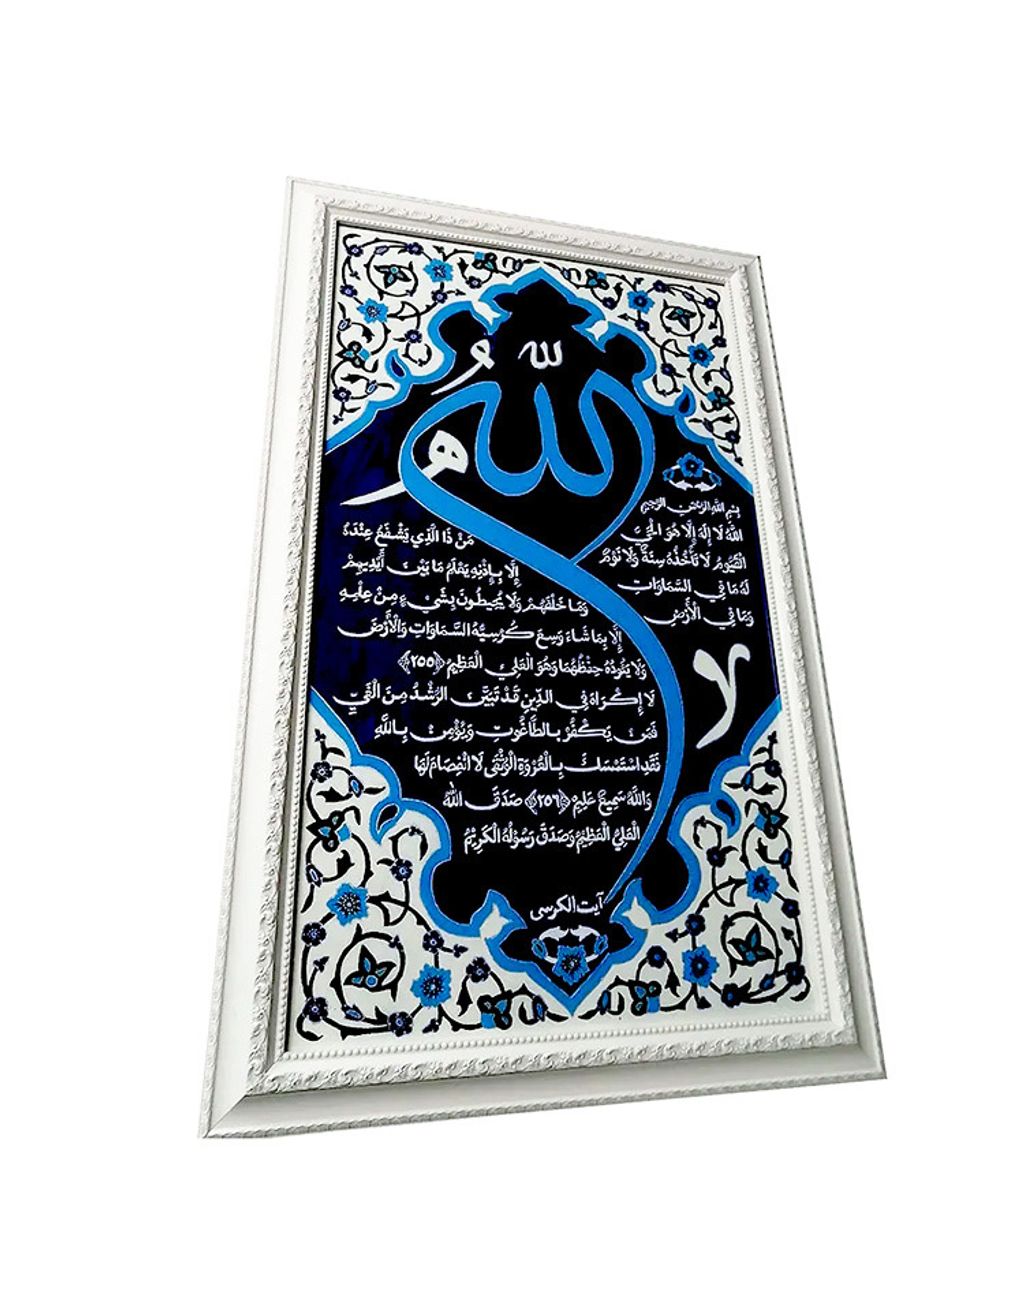 الله
بِسْمِ اللَّهِ الرَّحْمَنِ الرَّحِيمِ
اللَّهُ لَا إِلَهَ إِلَّا هُوَ الْحَيُّ
الْقَيُّومُ لَا تَأْخُذُهُ سِنَةٌ وَلَا نَوْمٌ
لَهُ مَا فِي السَّمَاوَاتِ
وَمَا فِي الْأَرْضِ
مَنْ ذَا الَّذِي يَشْفَعُ عِنْدَهُ
إِلَّا بِإِذْنِهِ يَعْلَمُ مَا بَيْنَ أَيْدِيهِمْ
وَمَا خَلْفَهُمْ وَلَا يُحِيطُونَ بِشَيْءٍ مِنْ عِلْمِهِ
إِلَّا بِمَا شَاءَ وَسِعَ كُرْسِيُّهُ السَّمَاوَاتِ وَالْأَرْضَ
وَلَا يَئُودُهُ حِفْظُهُمَا وَهُوَ الْعَلِيُّ الْعَظِيمُ ﴿٢٥٥﴾
لَا إِكْرَاهَ فِي الدِّينِ قَدْ تَبَيَّنَ الرُّشْدُ مِنَ الْغَيِّ
فَمَنْ يَكْفُرْ بِالطَّاغُوتِ وَيُؤْمِنْ بِاللَّهِ
فَقَدِ اسْتَمْسَكَ بِالْعُرْوَةِ الْوُثْقَى لَا انْفِصَامَ لَهَا
وَاللَّهُ سَمِيعٌ عَلِيمٌ ﴿٢٥٦﴾ صَدَقَ اللَّهُ
الْعَلِيُّ الْعَظِيمُ وَصَدَقَ رَسُولُهُ الْكَرِيمُ
آیت الکرسی